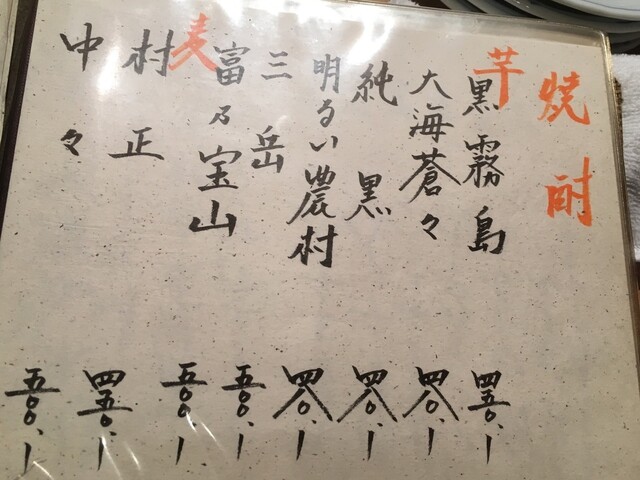 焼酎
芋
黒霧島 四五〇、ー
大海蒼々 四八〇、ー
純黒 四八〇、ー
明るい濃村 四八〇、ー
三岳 五〇〇、ー
富乃宝山 五〇〇、ー
麦
村正 四五〇、ー
中々 五〇〇、ー